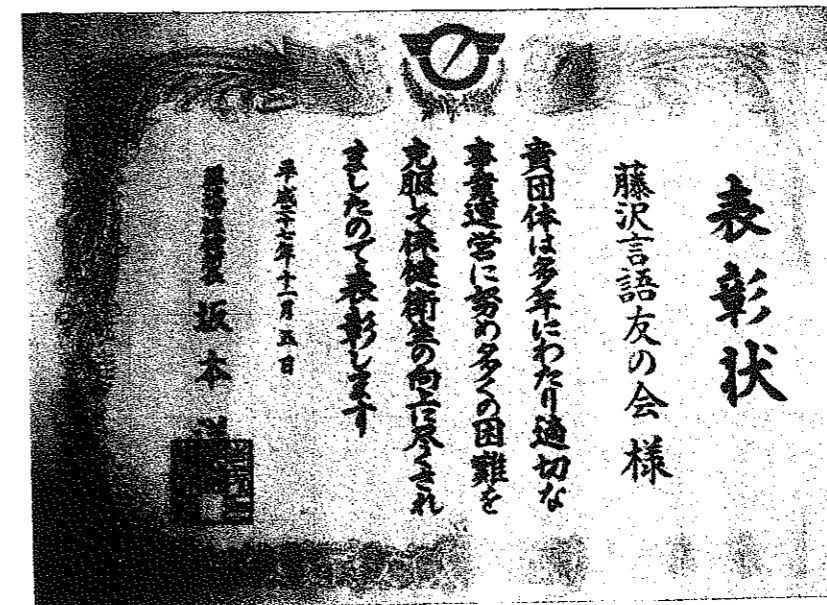 表彰状
藤沢言語友の会 様
貴団体は多年にわたり適切な
事業運営に努め多くの困難を
克服して保健衛生の向上に尽くされ
ましたので表彰します
平成二十七年十一月五日
坂本